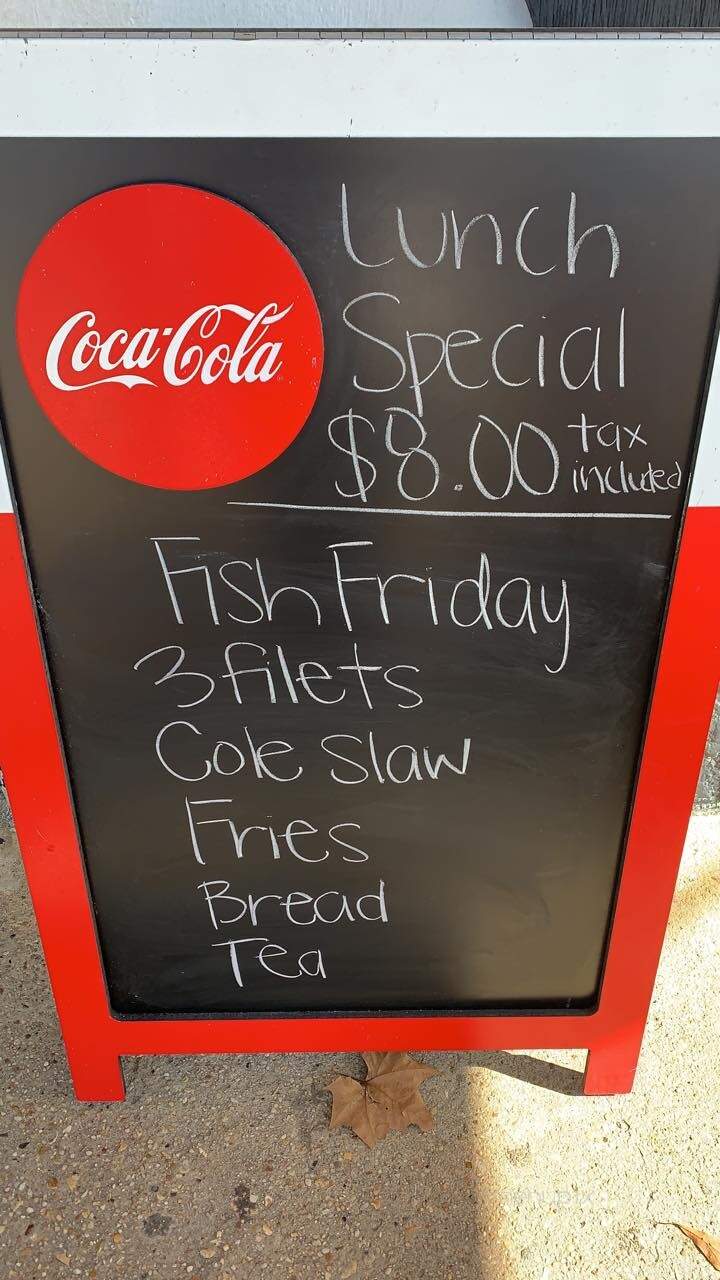 Coca-Cola
Lunch
Special
$8.00 tax included
Fish Friday
3 filets
Cole Slaw
Fries
Bread
Tea